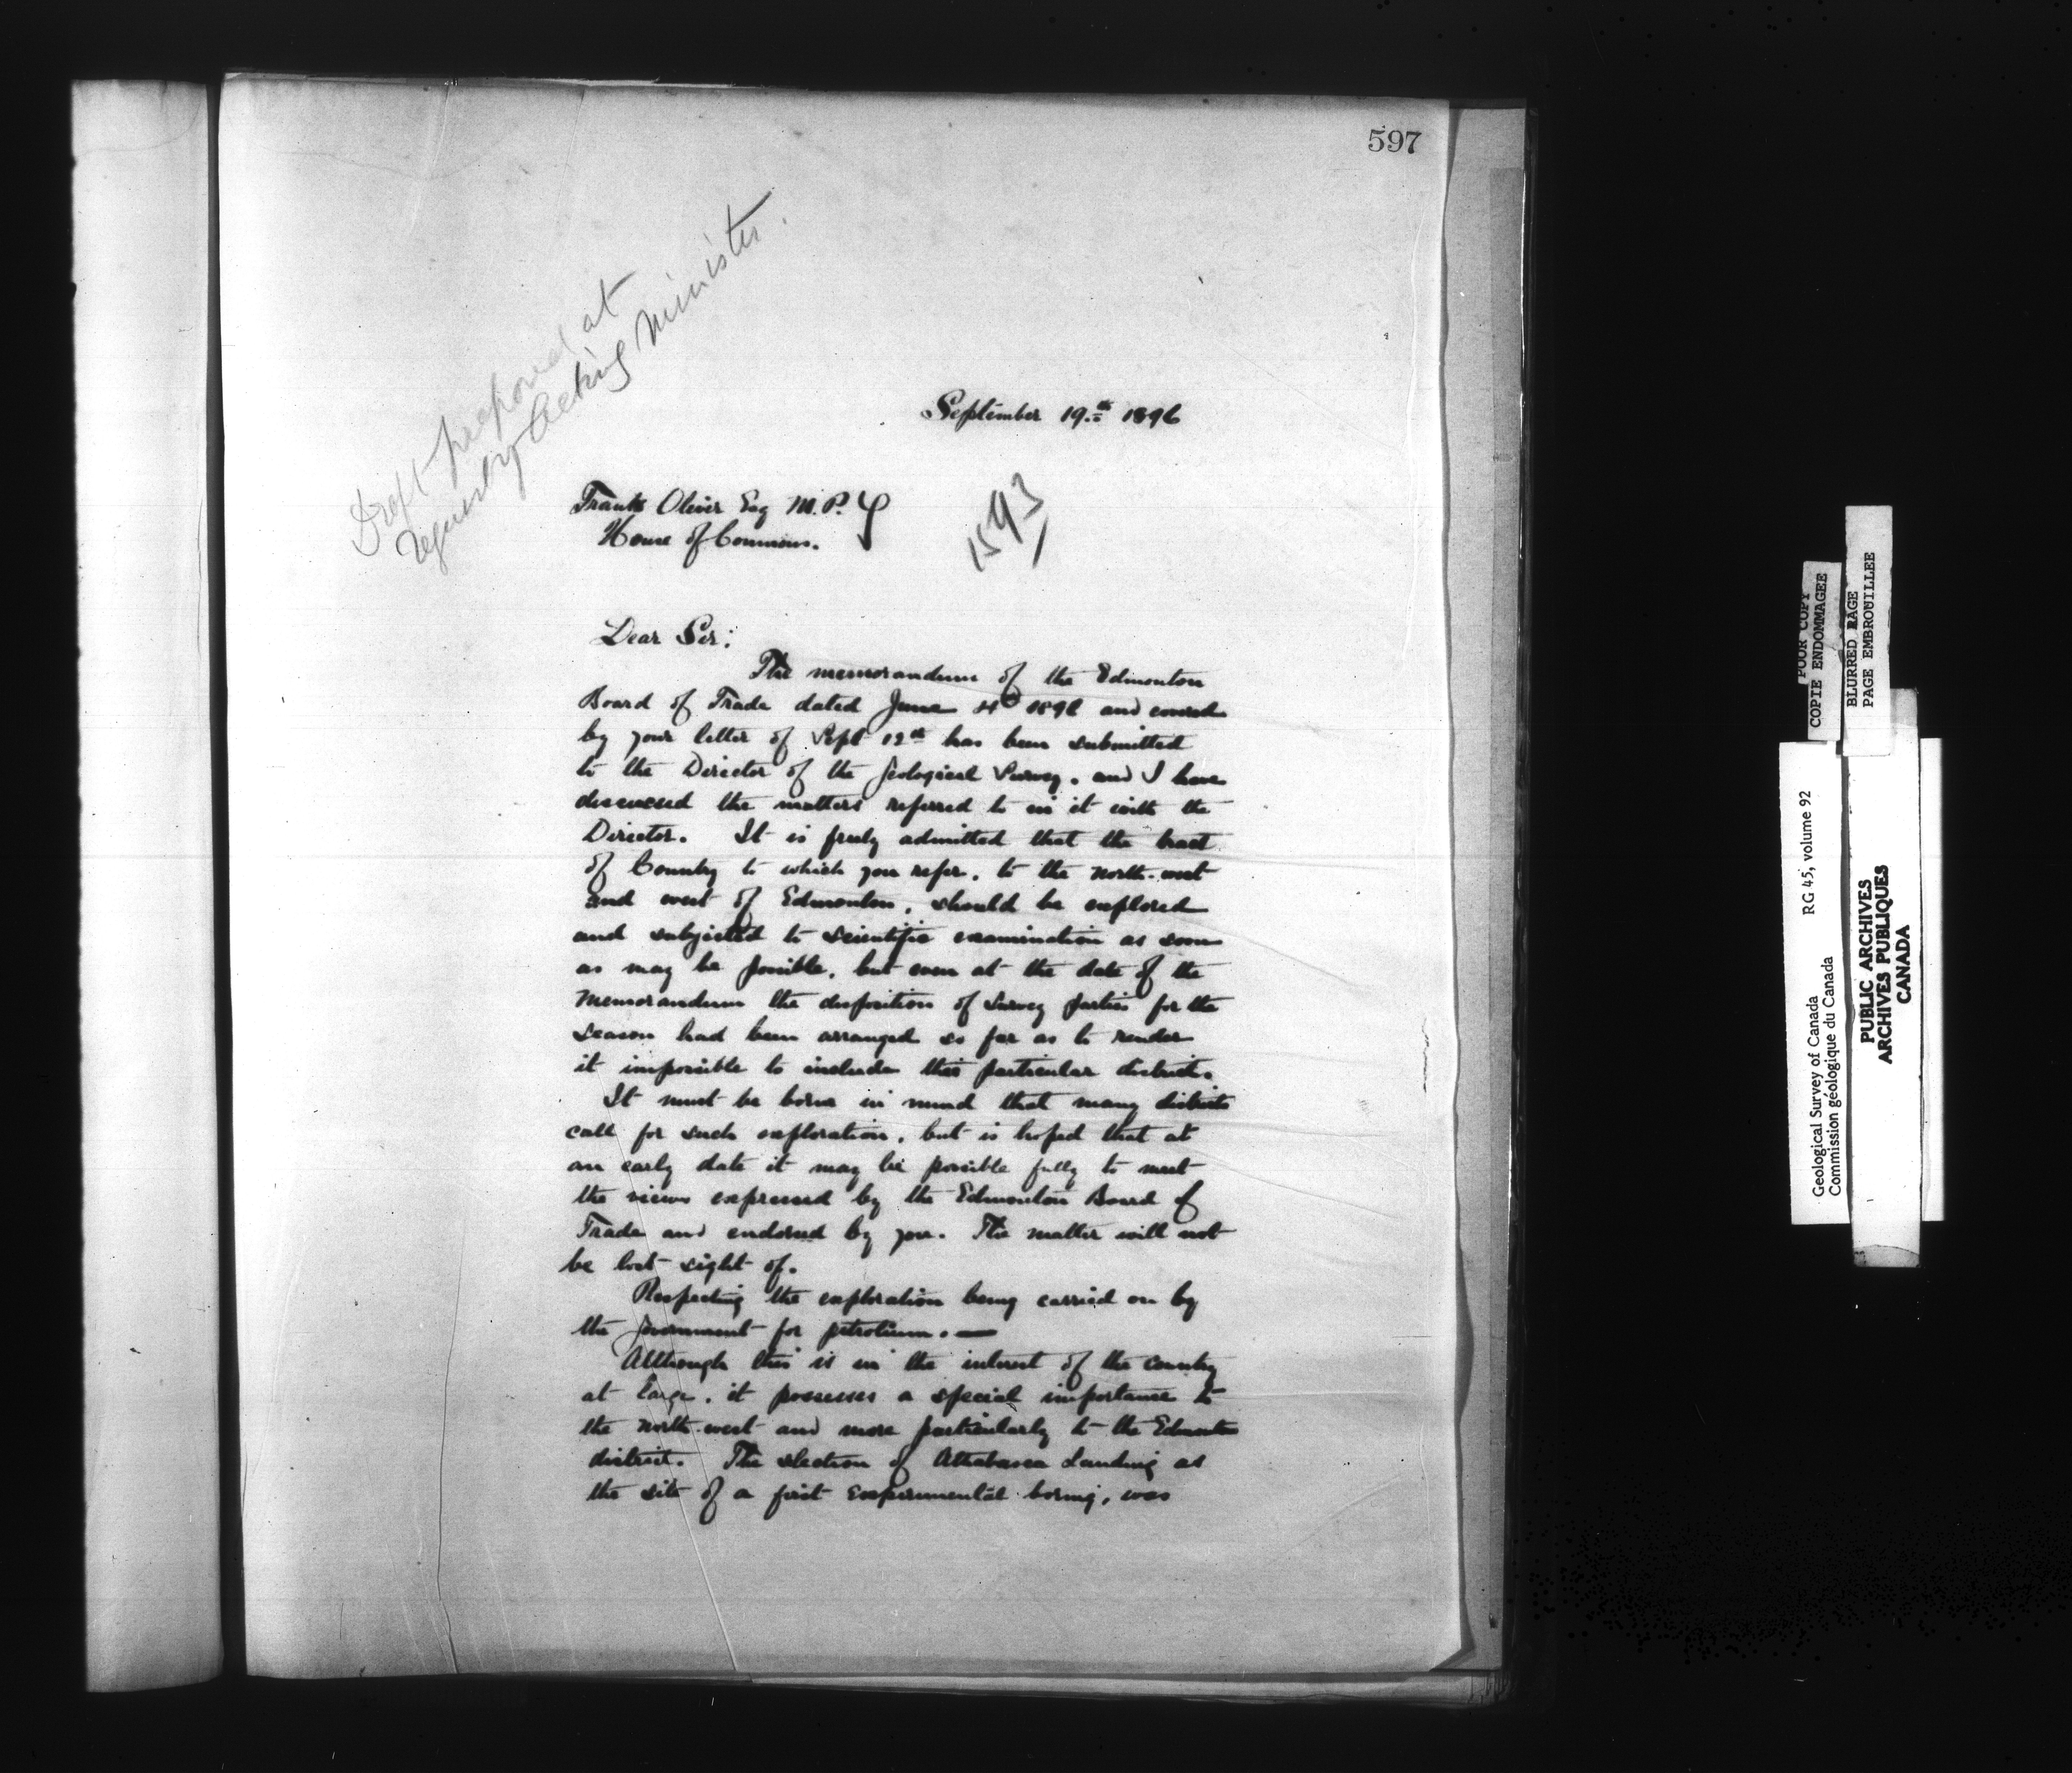 597
Draft prepared at
request of Acting Minister.
September 19th 1896
Frank Oliver Esq M.P.
House of Commons.
1593
Dear Sir:
The memorandum of the Edmonton
Board of Trade dated June 4th 1896 and covered
by your letter of Sept 12th has been submitted
to the Director of the Geological Survey, and I have
discussed the matters referred to in it with the
Director. It is freely admitted that the tract
of Country to which you refer, to the north-west
and west of Edmonton, should be explored
and subjected to scientific examination as soon
as may be possible, but even at the date of the
memorandum the disposition of Survey parties for the
season had been arranged so far as to render
it impossible to include this particular district.
It must be borne in mind that many districts
call for such exploration, but is hoped that at
an early date it may be possible fully to meet
the views expressed by the Edmonton Board of
Trade and endorsed by you. The matter will not
be lost sight of.
Respecting the exploration being carried on by
the Government for petroleum. —
Although this is in the interest of the country
at large, it possesses a special importance to
the north-west and more particularly to the Edmonton
district. The selection of Athabasca Landing as
the site of a first Experimental boring, was
POOR COPY
COPIE ENDOMMAGEE
BLURRED PAGE
PAGE EMBROUILLEE
Geological Survey of Canada RG 45, volume 92
Commission géologique du Canada
PUBLIC ARCHIVES
ARCHIVES PUBLIQUES
CANADA